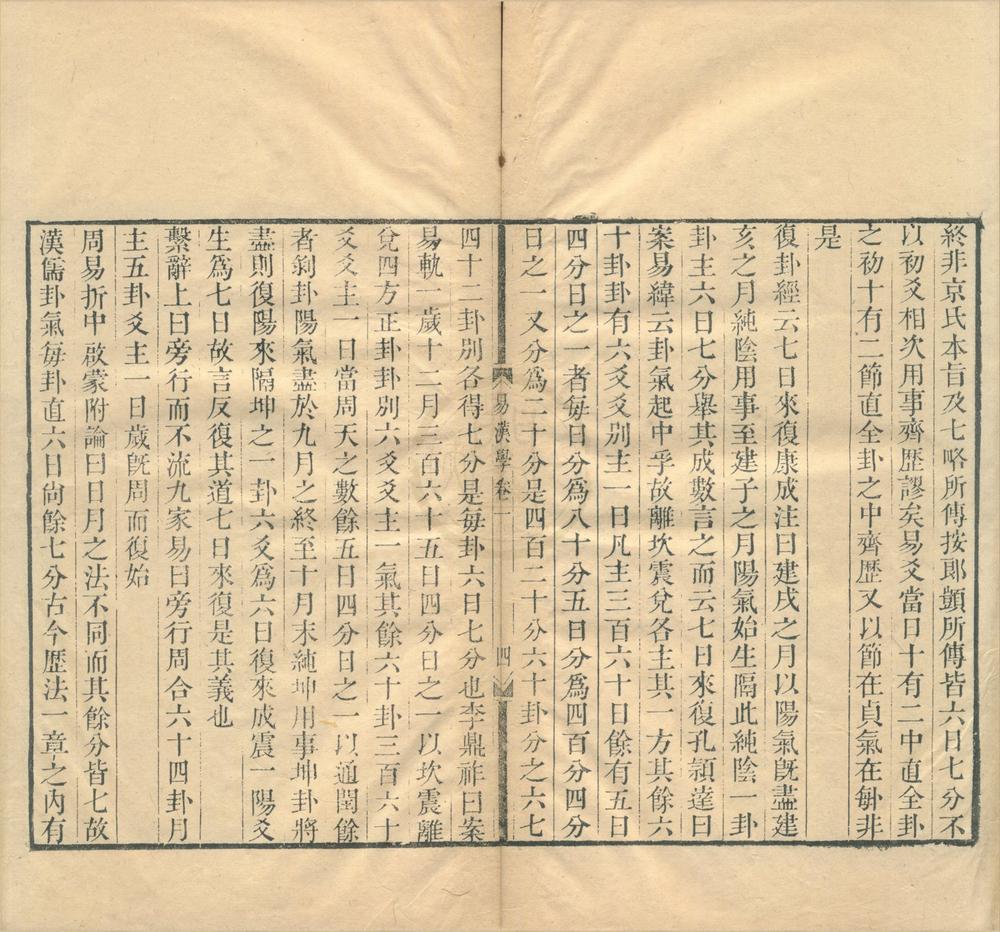 終非京氏本旨及七略所傳按郎顗所傳皆六日七分不
以初爻相次用事齊歷謬矣易爻當日十有二中直全卦
之初十有二節直全卦之中齊歷又以節在貞氣在每非
是
復卦經云七日來復康成注曰建戌之月以陽氣旣盡建
亥之月純陰用事至建子之月陽氣始生隔此純陰一卦
卦主六日七分舉其成數言之而云七日來復孔穎達曰
案易緯云卦氣起中孚故離坎震兌各主其一方其餘六
十卦卦有六爻爻別主一日凡主三百六十日餘有五日
四分日之一者每日分爲八十分五日分爲四百分四分
日之一又分爲二十分是四百二十分六十卦分之六七
易漢學卷一
四
四十二卦別各得七分是每卦六日七分也李鼎祚曰案
易軌一歲十二月三百六十五日四分日之一以坎震離
兌四方正卦卦別六爻爻主一氣其餘六十卦三百六十
爻爻主一日當周天之數餘五日四分日之一以通閏餘
者剝卦陽氣盡於九月之終至十月末純坤用事坤卦將
盡則復陽來隔坤之一卦六爻爲六日復來成震一陽爻
生爲七日故言反復其道七日來復是其義也
繫辭上曰旁行而不流九家易曰旁行周合六十四卦月
主五卦爻主一日歲旣周而復始
周易折中啟蒙附論曰日月之法不同而其餘分皆七故
漢儒卦氣每卦直六日尙餘七分古今歷法一章之內有